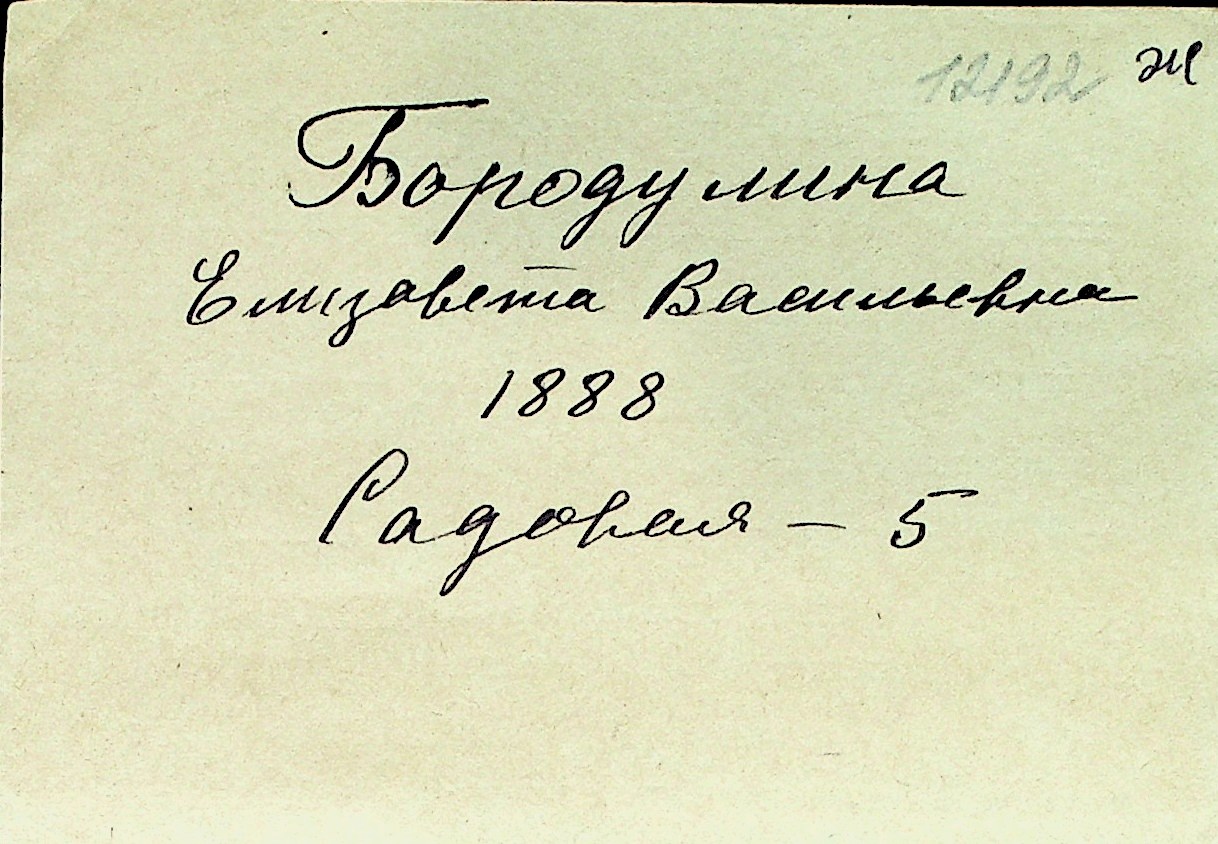 12192 ж
Бородулина
Елизавета Васильевна
1888
Садовая - 5